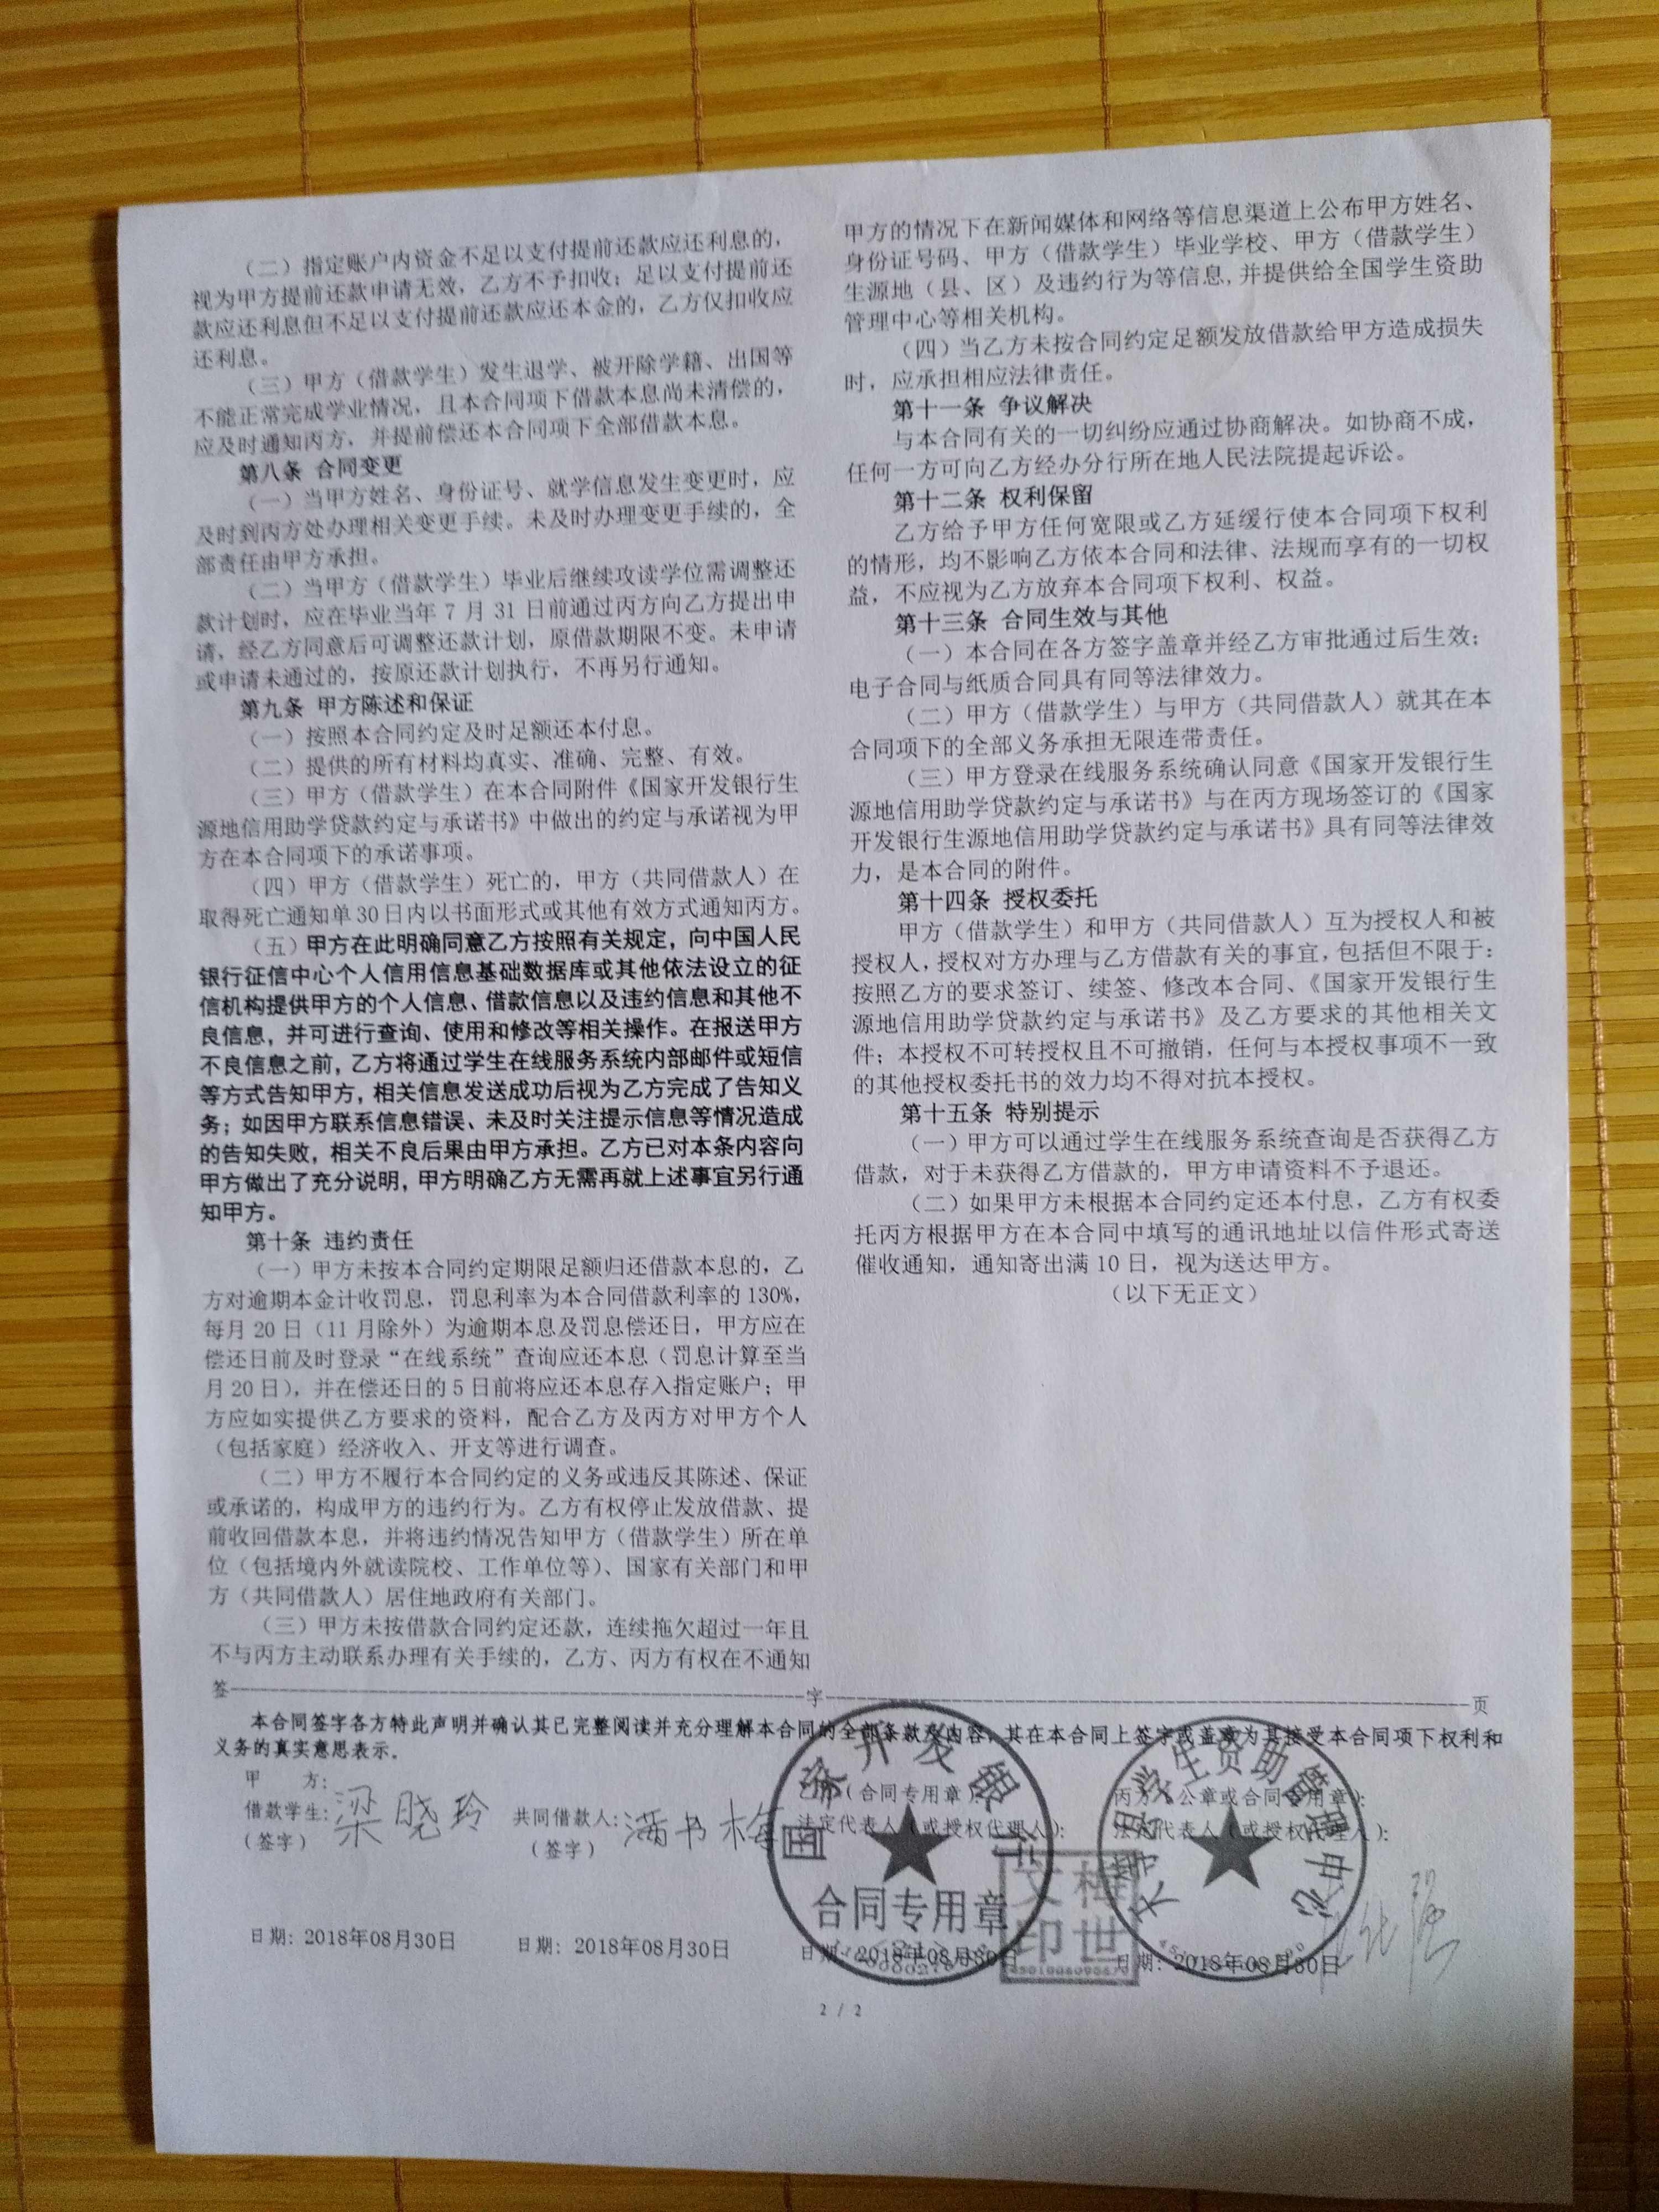 （二）指定账户内资金不足以支付提前还款应还利息的，
视为甲方提前还款申请无效，乙方不予扣收；足以支付提前还
款应还利息但不足以支付提前还款应还本金的，乙方仅扣收应
还利息。
（三）甲方（借款学生）发生退学、被开除学籍、出国等
不能正常完成学业情况，且本合同项下借款本息尚未清偿的，
应及时通知丙方，并提前偿还本合同项下全部借款本息。
第八条 合同变更
（一）当甲方姓名、身份证号、就学信息发生变更时，应
及时到丙方处办理相关变更手续。未及时办理变更手续的，全
部责任由甲方承担。
（二）当甲方（借款学生）毕业后继续攻读学位需调整还
款计划时，应在毕业当年 7 月 31 日前通过丙方向乙方提出申
请，经乙方同意后可调整还款计划，原借款期限不变。未申请
或申请未通过的，按原还款计划执行，不再另行通知。
第九条 甲方陈述和保证
（一）按照本合同约定及时足额还本付息。
（二）提供的所有材料均真实、准确、完整、有效。
（三）甲方（借款学生）在本合同附件《国家开发银行生
源地信用助学贷款约定与承诺书》中做出的约定与承诺视为甲
方在本合同项下的承诺事项。
（四）甲方（借款学生）死亡的，甲方（共同借款人）在
取得死亡通知单 30 日内以书面形式或其他有效方式通知丙方。
（五）甲方在此明确同意乙方按照有关规定，向中国人民
银行征信中心个人信用信息基础数据库或其他依法设立的征
信机构提供甲方的个人信息、借款信息以及违约信息和其他不
良信息，并可进行查询、使用和修改等相关操作。在报送甲方
不良信息之前，乙方将通过学生在线服务系统内部邮件或短信
等方式告知甲方，相关信息发送成功后视为乙方完成了告知义
务；如因甲方联系信息错误、未及时关注提示信息等情况造成
的告知失败，相关不良后果由甲方承担。乙方已对本条内容向
甲方做出了充分说明，甲方明确乙方无需再就上述事宜另行通
知甲方。
第十条 违约责任
（一）甲方未按本合同约定期限足额归还借款本息的，乙
方对逾期本金计收罚息，罚息利率为本合同借款利率的 130%，
每月 20 日（11 月除外）为逾期本息及罚息偿还日，甲方应在
偿还日前及时登录“在线系统”查询应还本息（罚息计算至当
月 20 日），并在偿还日的 5 日前将应还本息存入指定账户；甲
方应如实提供乙方要求的资料，配合乙方及丙方对甲方个人
（包括家庭）经济收入、开支等进行调查。
（二）甲方不履行本合同约定的义务或违反其陈述、保证
或承诺的，构成甲方的违约行为。乙方有权停止发放借款、提
前收回借款本息，并将违约情况告知甲方（借款学生）所在单
位（包括境内外就读院校、工作单位等）、国家有关部门和甲
方（共同借款人）居住地政府有关部门。
（三）甲方未按借款合同约定还款，连续拖欠超过一年且
不与丙方主动联系办理有关手续的，乙方、丙方有权在不通知
甲方的情况下在新闻媒体和网络等信息渠道上公布甲方姓名、
身份证号码、甲方（借款学生）毕业学校、甲方（借款学生）
生源地（县、区）及违约行为等信息，并提供给全国学生资助
管理中心等相关机构。
（四）当乙方未按合同约定足额发放借款给甲方造成损失
时，应承担相应法律责任。
第十一条 争议解决
与本合同有关的一切纠纷应通过协商解决。如协商不成，
任何一方可向乙方经办分行所在地人民法院提起诉讼。
第十二条 权利保留
乙方给予甲方任何宽限或乙方延缓行使本合同项下权利
的情形，均不影响乙方依本合同和法律、法规而享有的一切权
益，不应视为乙方放弃本合同项下权利、权益。
第十三条 合同生效与其他
（一）本合同在各方签字盖章并经乙方审批通过后生效；
电子合同与纸质合同具有同等法律效力。
（二）甲方（借款学生）与甲方（共同借款人）就其在本
合同项下的全部义务承担无限连带责任。
（三）甲方登录在线服务系统确认同意《国家开发银行生
源地信用助学贷款约定与承诺书》与在丙方现场签订的《国家
开发银行生源地信用助学贷款约定与承诺书》具有同等法律效
力，是本合同的附件。
第十四条 授权委托
甲方（借款学生）和甲方（共同借款人）互为授权人和被
授权人，授权对方办理与乙方借款有关的事宜，包括但不限于：
按照乙方的要求签订、续签、修改本合同、《国家开发银行生
源地信用助学贷款约定与承诺书》及乙方要求的其他相关文
件；本授权不可转授权且不可撤销，任何与本授权事项不一致
的其他授权委托书的效力均不得对抗本授权。
第十五条 特别提示
（一）甲方可以通过学生在线服务系统查询是否获得乙方
借款，对于未获得乙方借款的，甲方申请资料不予退还。
（二）如果甲方未根据本合同约定还本付息，乙方有权委
托丙方根据甲方在本合同中填写的通讯地址以信件形式寄送
催收通知，通知寄出满 10 日，视为送达甲方。
（以下无正文）
签 字 页
本合同签字各方特此声明并确认其已完整阅读并充分理解本合同的全部条款及内容，其在本合同上签字或盖章为其接受本合同项下权利和
义务的真实意思表示。
甲 方：
借款学生：梁晓玲
（签字）
共同借款人：满书梅
（签字）
乙方（合同专用章）：
法定代表人（或授权代理人）：
丙方（公章或合同专用章）：
法定代表人（或授权代理人）：
国家开发银行
合同专用章
文梅
印世
学生资助管理中心
日期：2018年08月30日
日期：2018年08月30日
日期：2018年08月30日
日期：2018年08月30日
2 / 2